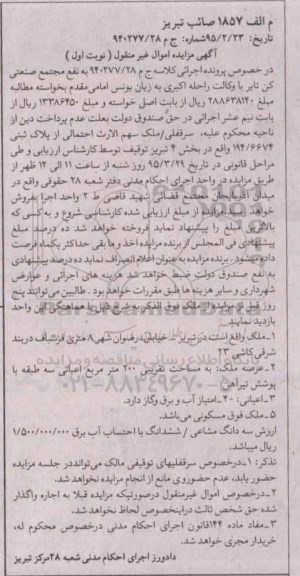 م الف ۱۸۵۷ صائب تبریز
تاریخ: ۹۵/۲/۲۳ شماره: ج م ۹۴۰۲۷۷/۲۸
آگهی مزایده اموال غیر منقول ( نوبت اول )
در خصوص پرونده اجرائی کلاسه ج م ۹۴۰۲۷۷/۲۸ به نفع مجتمع صنعتی
کن تایر با وکالت راحله اکبری به زیان یونس امامی‌مقدم بخواسته مطالبه
مبلغ ۲۸۸۶۳۸۱۴۰ ریال از بابت اصل خواسته و مبلغ ۱۳۳۸۶۴۵۰ ریال از
بابت نیم عشر اجرائی در حق صندوق دولت بعلت عدم پرداخت دین از
ناحیه محکوم علیه، سرقفلی/ملک سهم الارث احتمالی از پلاک ثبتی
۱۹۴/۶۶۷۴ واقع در بخش ۴ تبریز توقیف توسط کارشناس ارزیابی و طی
مراحل قانونی در تاریخ ۹۵/۳/۲۹ روز شنبه از ساعت ۱۱ الی ۱۲ ظهر از
طریق مزایده در واحد اجرای احکام مدنی دفتر شعبه ۲۸ حقوقی واقع در
میدان آذربایجان مجتمع قضائی شهید قاضی ط ۲ واحد اجرا بفروش
خواهد رسید مزایده از مبلغ ارزیابی شده کارشناسی شروع و به کسی که
بالاترین مبلغ را پیشنهاد نماید فروخته خواهد شد ده درصد مبلغ
پیشنهادی فی المجلس از برنده مزایده اخذ و ما بقی حداکثر یکماه فرصت
داده میشود. برنده مزایده به عنوان اعلام انصراف نماید ده درصد پیشنهادی
به نفع صندوق دولت ضبط خواهد شد هزینه های اجرائی و عوارض
شهرداری و سایر هزینه ها طبق مقررات خواهد بود. طالبین می‌توانند پنج
روز قبل از مزایده از ملک فوق الذکر به شرح ذیل با هماهنگی این واحد
بازدید نمایند
۱-ملک واقع است در تبریز - خیابان رضوان شهر ۸ متری قزلباف دربند
شرقی کاشی ۲۳
۲-عرصه ملک: به مساحت تقریبی ۲۰۰ متر مربع اعیانی سه طبقه با
پوشش تیرآهن
۳-اعیانی: ۴-امتیاز آب و برق وگاز دارد.
۵-ملک فوق مسکونی می‌باشد.
ارزش سه دانگ مشاعی / ششدانگ با احتساب آب برق ۱/۵۰۰/۰۰۰/۰۰۰
ریال میباشد.
تذکر: ۱-درخصوص سرقفلیهای توقیفی مالک می‌توانددر جلسه مزایده
حضور یابد، عدم حضوروی مانع از انجام مزایده نخواهد شد.
۲-درخصوص اموال غیرمنقول درصورتیکه مزایده قبلا به اجاره واگذار
شده حق شخص ثالث دراینخصوص لحاظ نخواهد شد.
۳-مفاد ماده ۱۴۴قانون اجرای احکام مدنی درخصوص محکوم له،
خریدار مجری خواهد شد.
دادورز اجرای احکام مدنی شعبه ۲۸مرکز تبریز